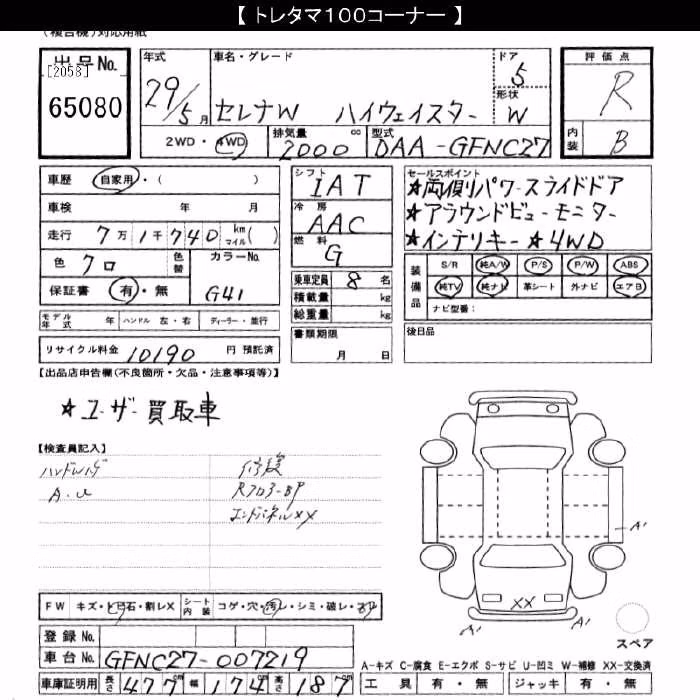 【 トレタマ100コーナー 】
(複合機)対応用紙
出品No.
[2058]
65080
年式
29/5月
車名・グレード
セレナW ハイウェイスター
ドア
5
形状
W
評価点
R
内装
B
2WD・4WD
排気量 cc
2000
型式
DAA-GFNC27
車歴 自家用・( )
車検 年 月
走行 7万1千740 km マイル( )
色 クロ 色替
カラーNo.
G41
保証書 有・無
シフト
IAT
冷房
AAC
燃料
G
乗車定員 8 名
積載量 kg
総重量 kg
セールスポイント
★両側パワースライドドア
★アラウンドビューモニター
★インテリキー ★4WD
装備品
S/R 純A/W P/S P/W ABS
純TV 純ナビ 革シート 外ナビ エアB
ナビ型番:
モデル年式 年 ハンドル 左・右 ディーラー・並行
リサイクル料金 10190 円 預託済
書類期限
月 日
後日品
【出品店申告欄(不良箇所・欠品・注意事項等)】
★ユーザー買取車
【検査員記入】
A.U
修復
エンドパネルXX
A'
XX
A'
FW キズ・トビ石・割レX
シート内装 コゲ・穴・汚レ・シミ・破レ・スレ
登録No.
車台No. GFNC27-007219
車庫証明用 長さ 477cm 幅 174cm 高さ 187cm
スペア
A-キズ C-腐食 E-エクボ S-サビ U-凹ミ W-補修 XX-交換済
工具 有・無 ジャッキ 有・無